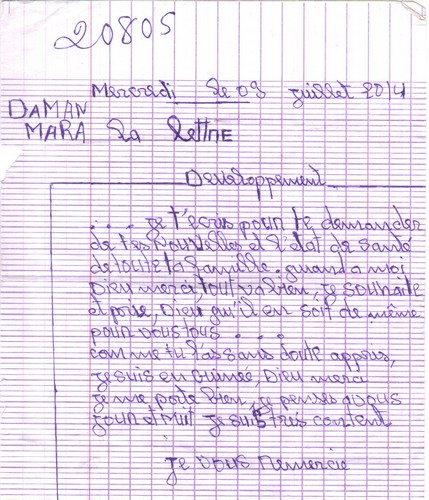 20805
Mercredi le 09 juillet 2014
DAMAN
MARA la lettre
Developpement
.... je t'ecris pour te demander
de tes nouvelles et l'etat de santé
de toute la famille. quand a moi
Dieu merci, tout va bien, je souhaite
et prie, Dieu qu'il en soit de même
pour vous tous....
comme tu l'as sans doute appris,
je suis en Guinée, Dieu merci
je me porte bien, je pense a vous
jour et nuit je suis très content
je vous remercie